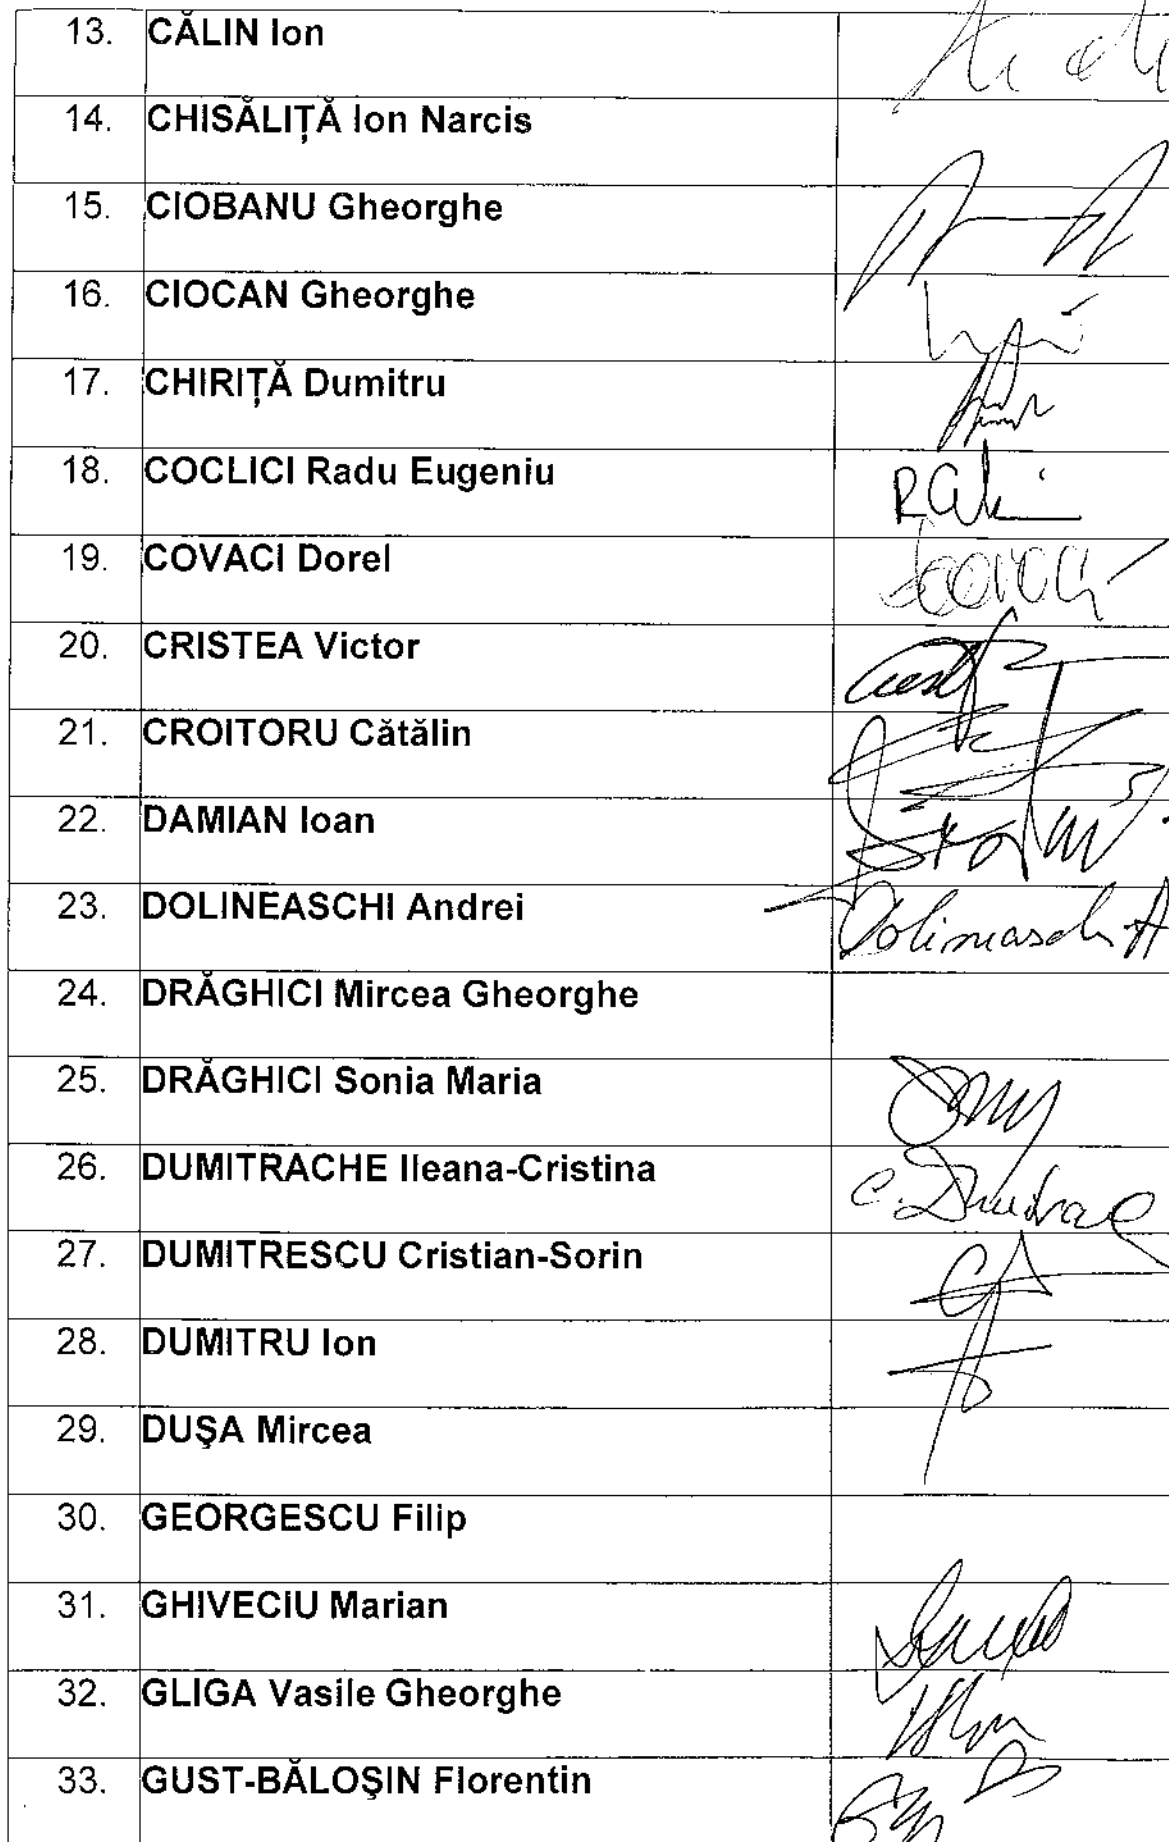 13. CĂLIN Ion
14. CHISĂLIŢĂ Ion Narcis
15. CIOBANU Gheorghe
16. CIOCAN Gheorghe
17. CHIRIŢĂ Dumitru
18. COCLICI Radu Eugeniu
19. COVACI Dorel
20. CRISTEA Victor
21. CROITORU Cătălin
22. DAMIAN Ioan
23. DOLINEASCHI Andrei Dolineaschi A
24. DRĂGHICI Mircea Gheorghe
25. DRĂGHICI Sonia Maria
26. DUMITRACHE Ileana-Cristina
27. DUMITRESCU Cristian-Sorin
28. DUMITRU Ion
29. DUŞA Mircea
30. GEORGESCU Filip
31. GHIVECIU Marian
32. GLIGA Vasile Gheorghe
33. GUST-BĂLOŞIN Florentin